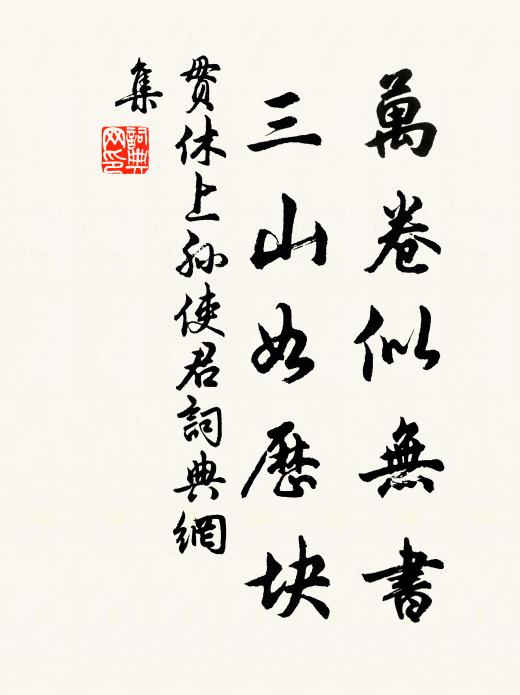 萬卷似無書
三山如歷块
貫休上孫使君詞典網
集
詞典
网印